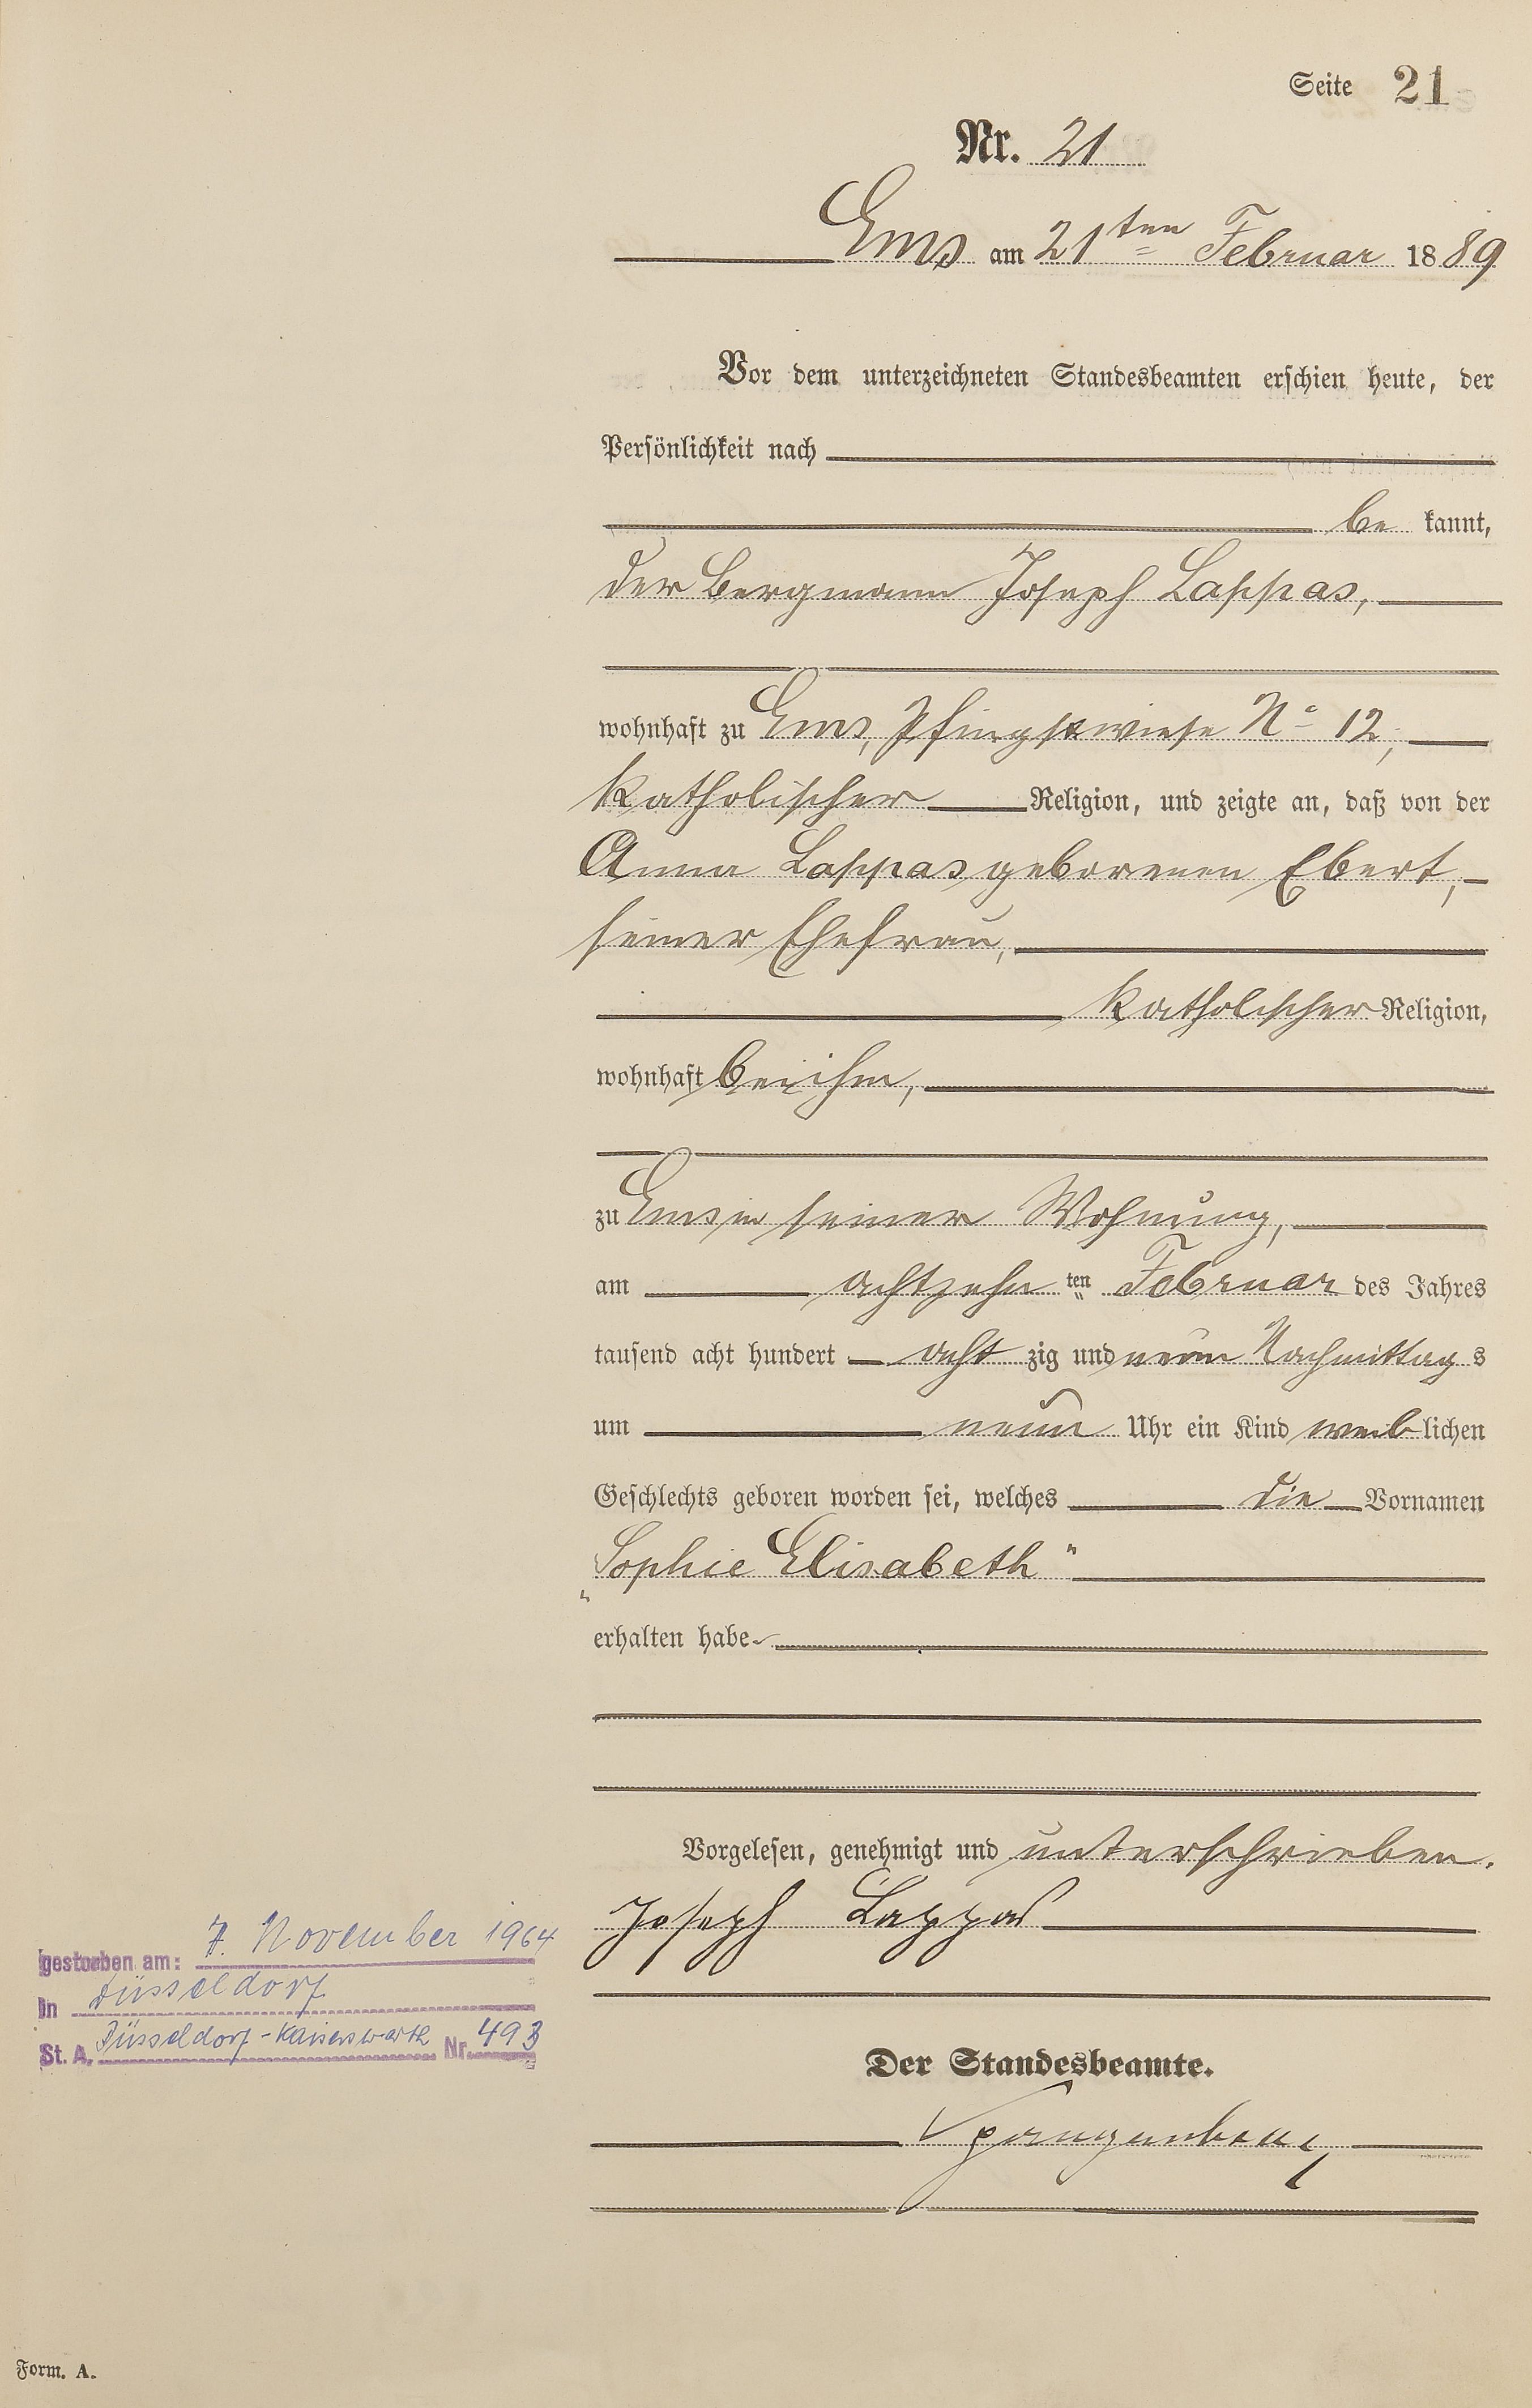 Seite 21
Nr. 21
Ems am 21ten Februar 1889
Vor dem unterzeichneten Standesbeamten erschien heute, der
Persönlichkeit nach
be kannt,
der Bergmann Joseph Lappas,
wohnhaft zu Ems, Pfingstwiese No 12,
katholischer Religion, und zeigte an, daß von der
Anna Lappas geborenen Ebert,
seiner Ehefrau,
katholischer Religion,
wohnhaft bei ihm,
zu Ems in seiner Wohnung,
am achtzehn ten Februar des Jahres
tausend acht hundert acht zig und neun Nachmittag s
um neun Uhr ein Kind weiblichen
Geschlechts geboren worden sei, welches die Vornamen
„Sophie Elisabeth“
erhalten habe
Vorgelesen, genehmigt und unterschrieben.
Joseph Lappas
gestorben am: 7. November 1964
in Düsseldorf
St. A. Düsseldorf-Kaiserswerth Nr. 493
Der Standesbeamte.
Form. A.